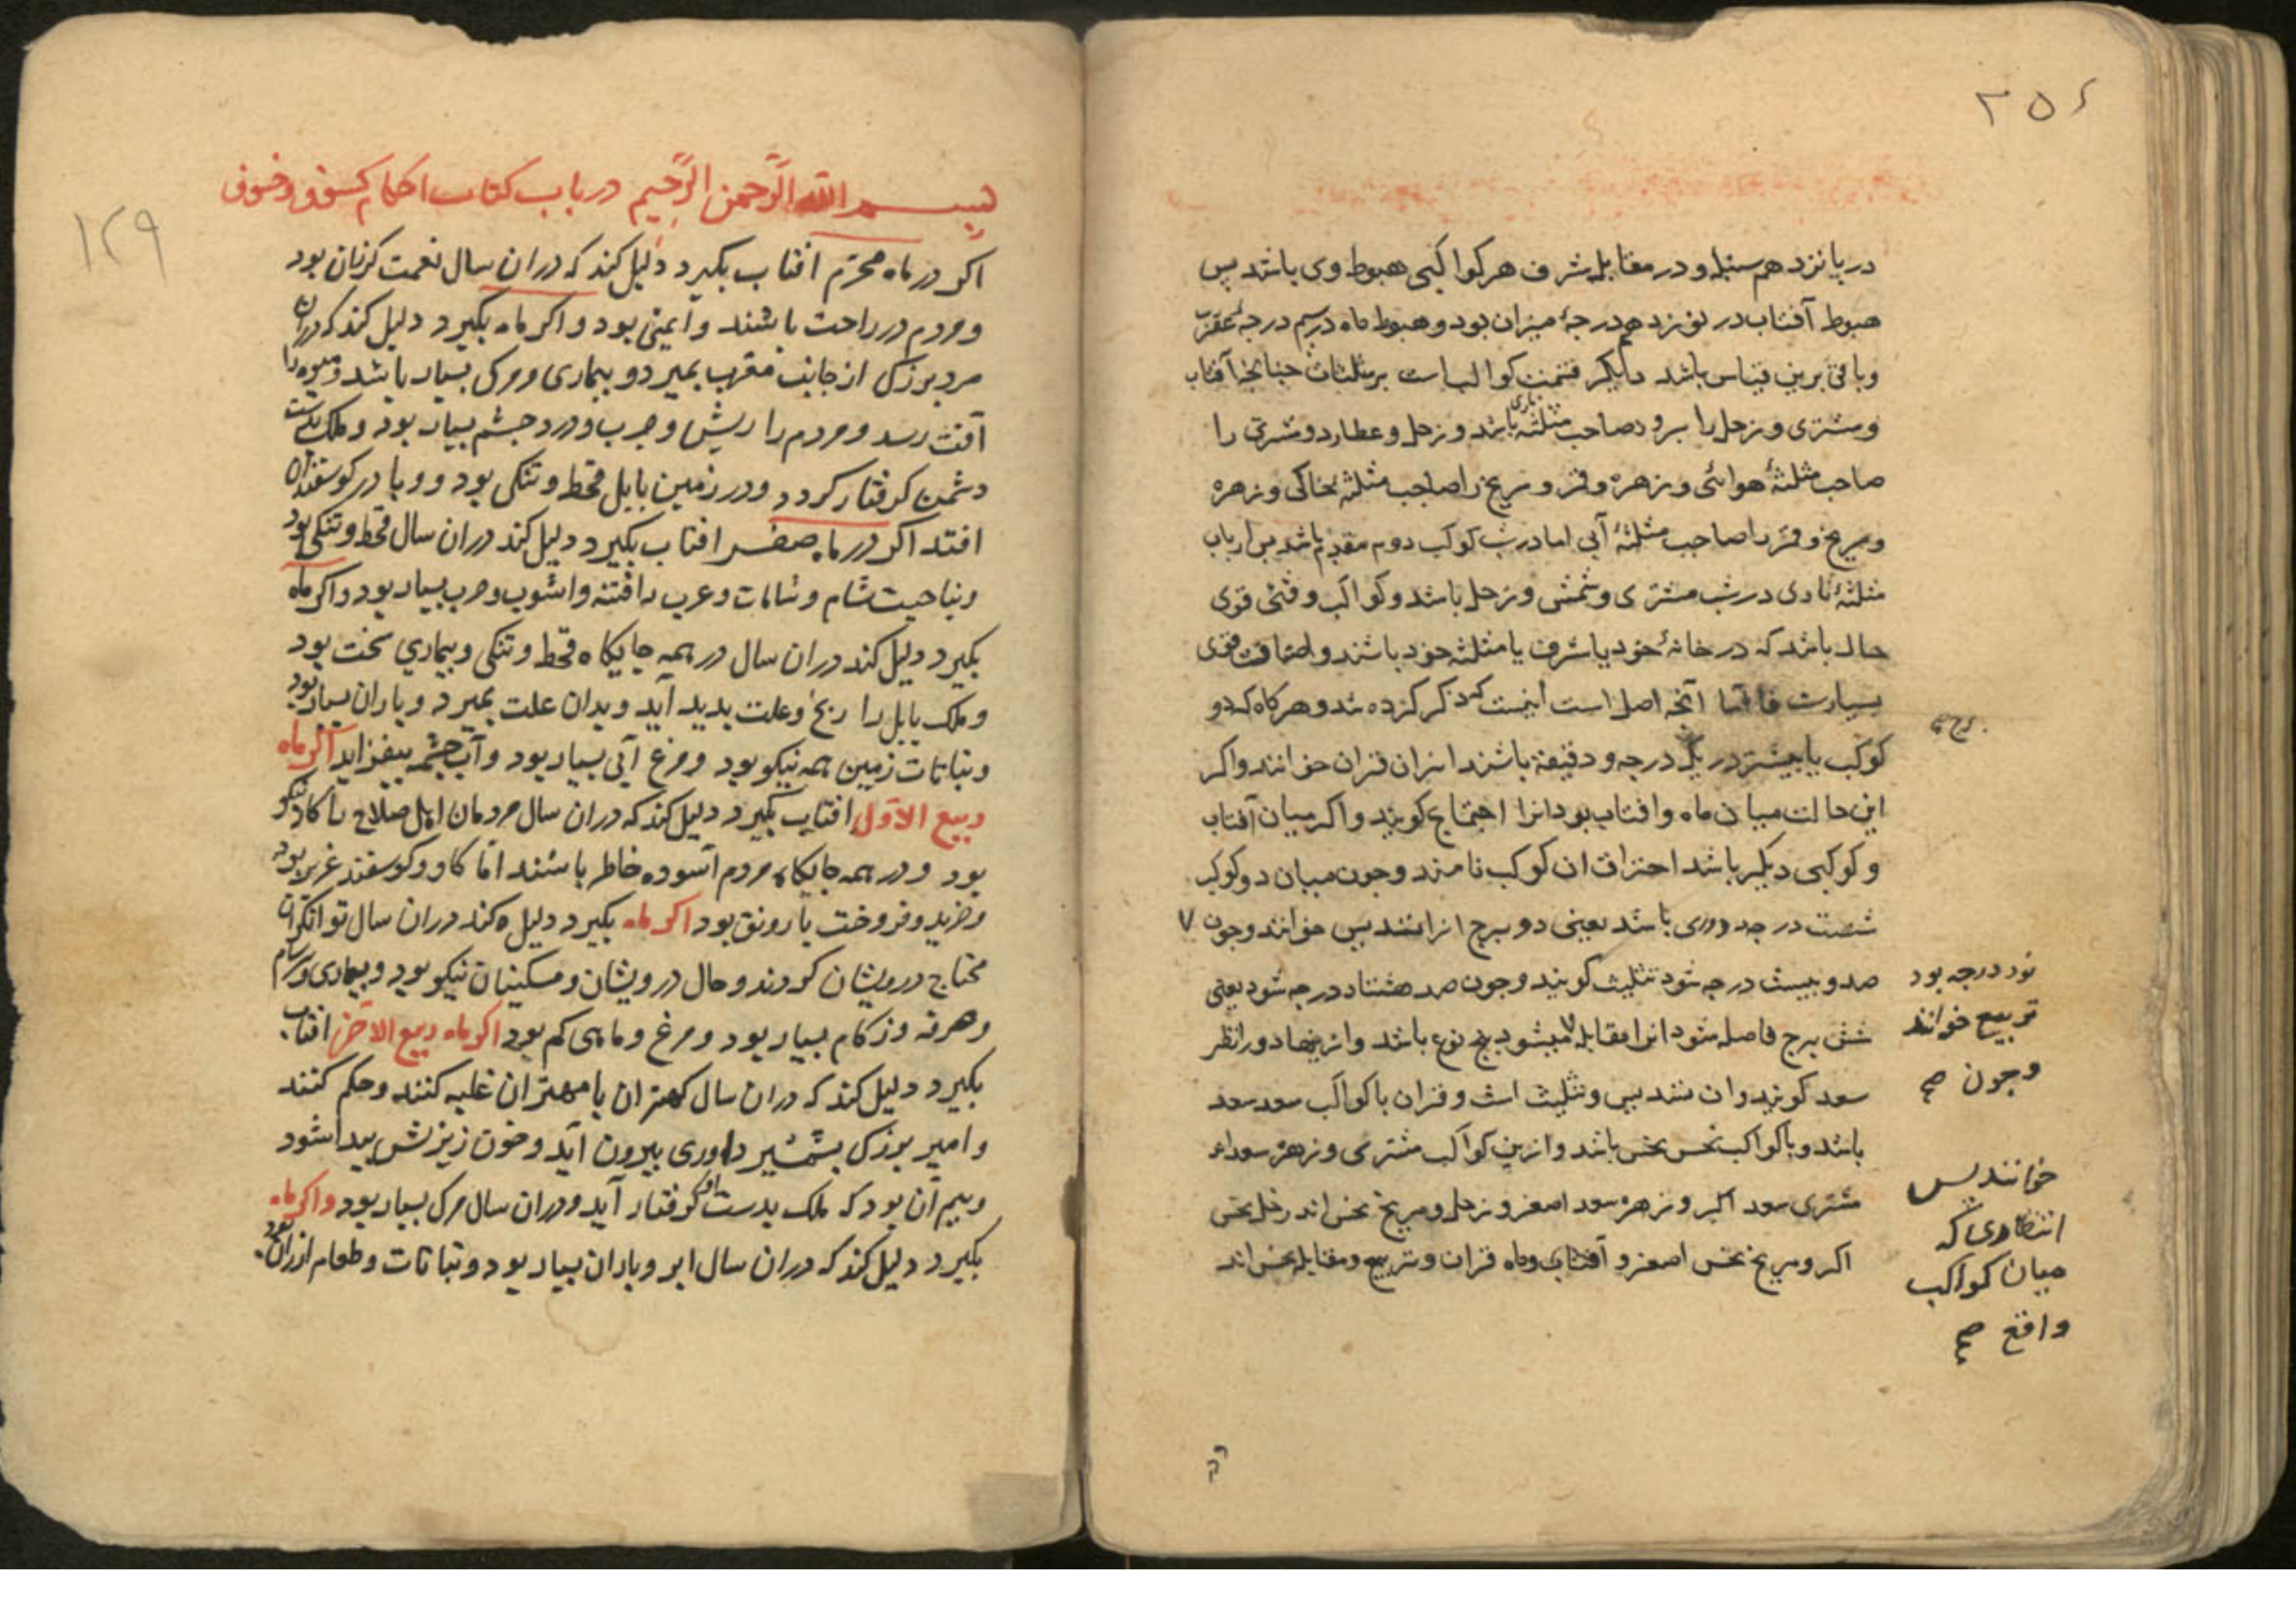 ۲۵۶
در پانزدهم سنبله و در مقابله شرف هر کواکبی هبوط وی باشد پس
هبوط آفتاب در نوزدهم درجهٔ میزان بود و هبوط ماه در سیم درجهٔ عقرب
و باقی برین قیاس باشد دیکر قسمت کواکب است بر مثلثات جنانجه آفتاب
و مشتری و زحل را بروز صاحب مثلثهٔ ناری باشد و زحل و عطارد و مشتری را
صاحب مثلثهٔ هوائی و زهره و قمر و مریخ را صاحب مثلثه خاکی و زهره
و مریخ و قمر را صاحب مثلثهٔ آبی اما در شب کوکب دوم مقدم باشد بس ارباب
مثلثهٔ ناری در شب مشتری و شمش و زحل باشد و کواکب وقتی قوی
حال باشد که در خانهٔ خود یا شرف یا مثلثه خود باشند و اضافت قوی
بسیارست فاما آنجه اصل است اینست که ذکر کرده شد و هر کاه که دو
کوکب یا بیشتر در یک درجه و دقیقة باشند انرا قران خوانند و اکر
این حالت میان ماه و افتاب بود انرا اجتماع کویند و اکر میان آفتاب
و کوکبی دیکر باشد احتراق ان کوکب نامند و جون میان دو کوکب
شصت درجه دوری باشد یعنی دو برج انرا تسدیس خوانند و جون ٧
صد و بیست درجه شود تثلیث کویند و جون صد هشتاد درجه شود یعنی
شش برج فاصله شود انرا مقابله میشود پنج نوع باشد و ازینها دو را نظر
سعد کویند و ان تسدیس و تثلیث است و قران با کواکب سعد سعد
باشد و با کواکب نحس نحس باشد و ازین کواکب مشتری و زهره سعداند
مشتری سعد اکبر و زهره سعد اصغر و زحل و مریخ نحس اند زحل نحس
اکبر و مریخ نحس اصغر و آفتاب و ماه قران و تربیع و مقابله نحس اند
نود درجه بود
تربیع خوانند
و جون صح
خوانند پس
انتظاری که
میان کواکب
واقع صح
۱۲۹
بسم الله الرحمن الرحیم در باب کتاب احکام کسوف و خسوف
اکر در ماه محرّم افتاب بکیرد دلیل کند که در ان سال نعمت کرنان بود
و مردم در راحت باشند و ایمنی بود و اکر ماه بکیرد دلیل کند که دران
مرد بزرک از جانب مغرب بمیرد و بیماری و مرک بسیار باشد و میوه را
آفت رسد و مردم را ریش و جرب و درد جشم بسیار بود و ملک بدست
دشمن کرفتار کردد و در زمین بابل قحط و تنکی بود و وبا در کوسفندان
افتد اکر در ماه صفر افتاب بکیرد دلیل کند در ان سال قحط و تنکی بود
و بناحیت شام و شامات و عرب را فتنه و اشوب و حرب بسیار بود و اکر ماه
بکیرد دلیل کند در ان سال در همه جایکاه قحط و تنکی و بیماری سخت بود
و ملک بابل را رنج و علت بدید آید و بدان علت بمیرد و باران بسیار بود
و نباتات زمین همه نیکو بود و مرغ آبی بسیار بود و آب جشمه بیفزاید اکر ماه
ربیع الاوّل افتاب بکیرد دلیل کند که در ان سال مردمان اهل صلاح را کار نیکو
بود و در همه جایکاه مردم آسوده خاطر باشند امّا کاو و کوسفند عزیز بود
و خرید و فروخت با رونق بود اکر ماه بکیرد دلیل کند در ان سال توانکران
محتاج درویشان کردند و حال درویشان و مسکینان نیکو بود و بیماری و سرسام
و هرفه و زکام بسیار بود و مرغ و ماهی کم بود اکر ماه ربیع الاخر افتاب
بکیرد دلیل کند که در ان سال کهتران با مهتران غلبه کنند و حکم کنند
و امیر بزرک بشمشیر داوری بیرون آید و خون ریزش بیدا شود
و بیم آن بود که ملک بدست او کرفتار آید و در ان سال مرک بسیار بود و اکر ماه
بکیرد دلیل کند که در ان سال ابر و باران بسیار بود و نباتات و طعام ارزان بود